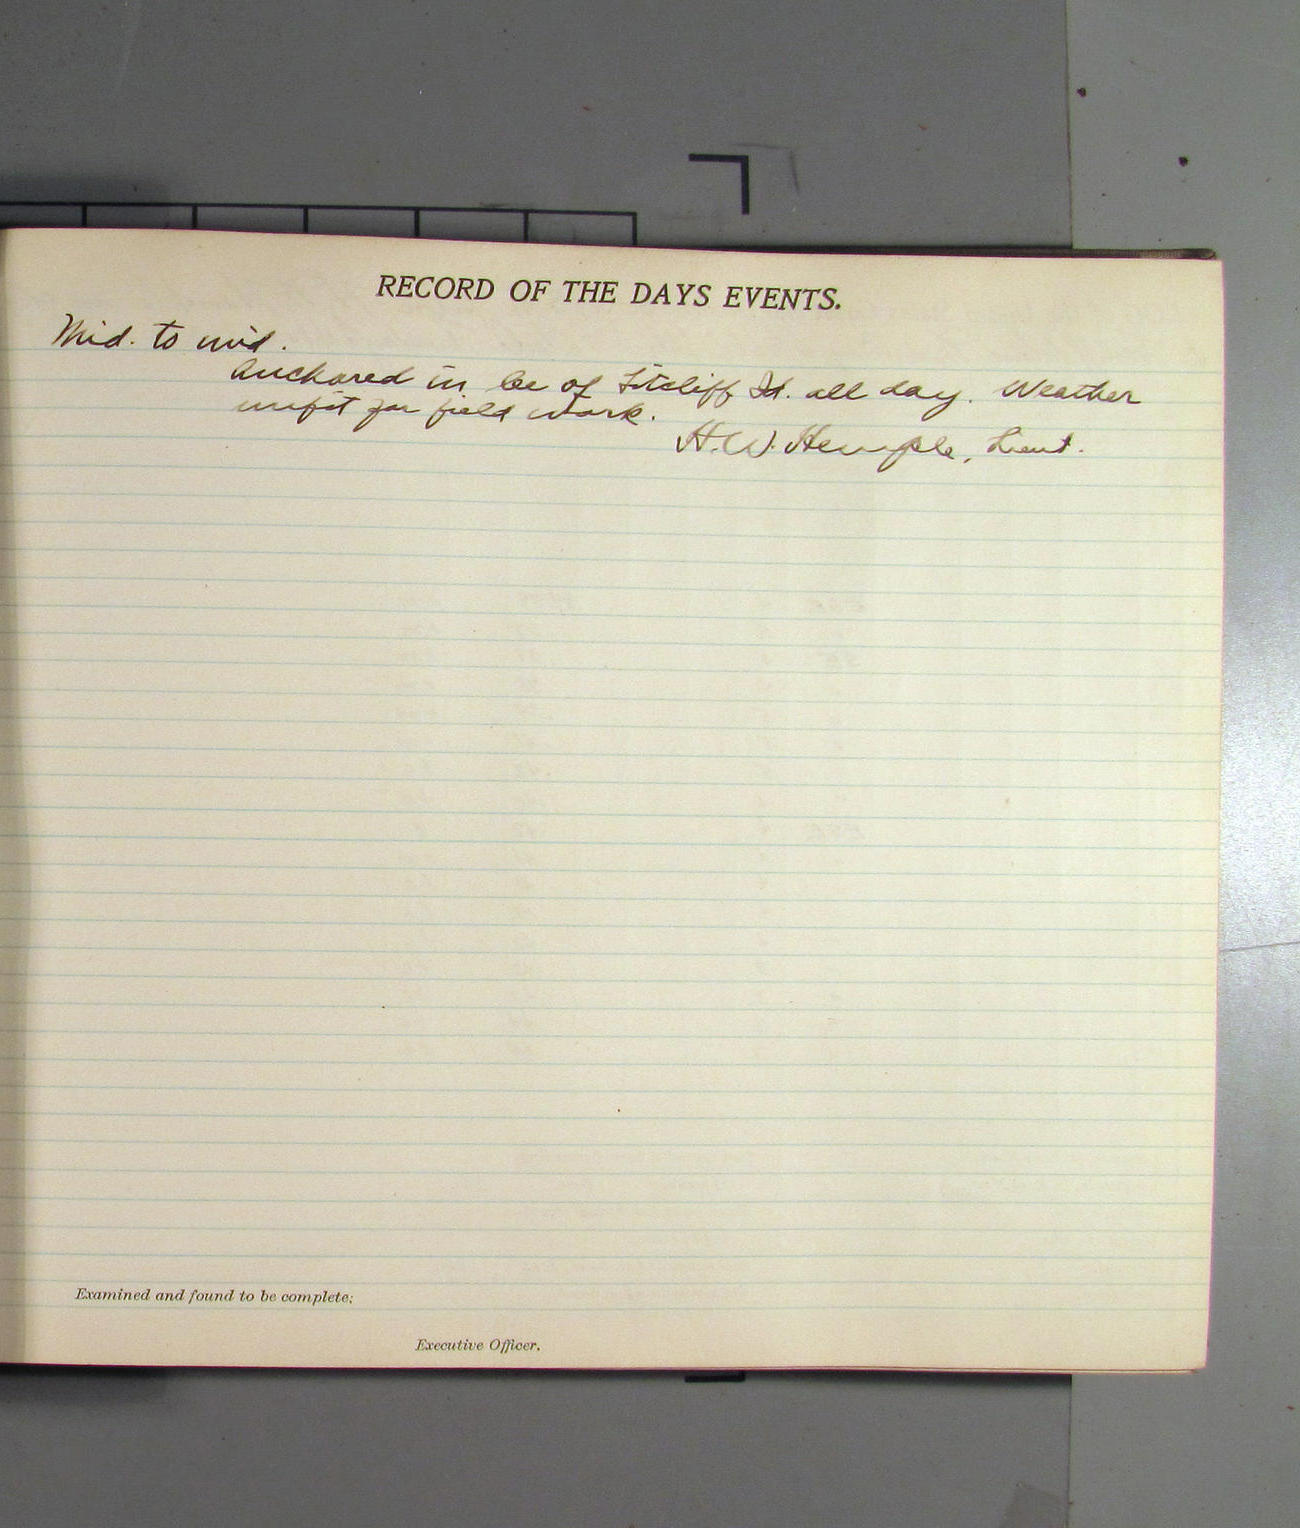 RECORD OF THE DAYS EVENTS.
Mid. to mid.
Anchored in lee of Sitcliff Id. all day. Weather
unfit for field work.
H.W. Hemple, Lieut.
Examined and found to be complete;
Executive Officer.